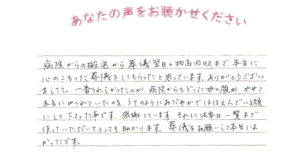 あなたの声をお聴かせください
病院からの搬送から葬儀翌日の物品回収まで本当に
心のこもった葬儀をしてもらったと思っています。ありがとうござい
ました。一番うれしかったのが、病院からもどった母の顔が、やせて
本当にかわれていたのを、うそのようにおだやかでほほえんでいる顔
にして下さった事です。感謝しています。それに法要日一覧まで
作っていただいてとっても助かります。葬儀をお願いして本当によ
かったです。